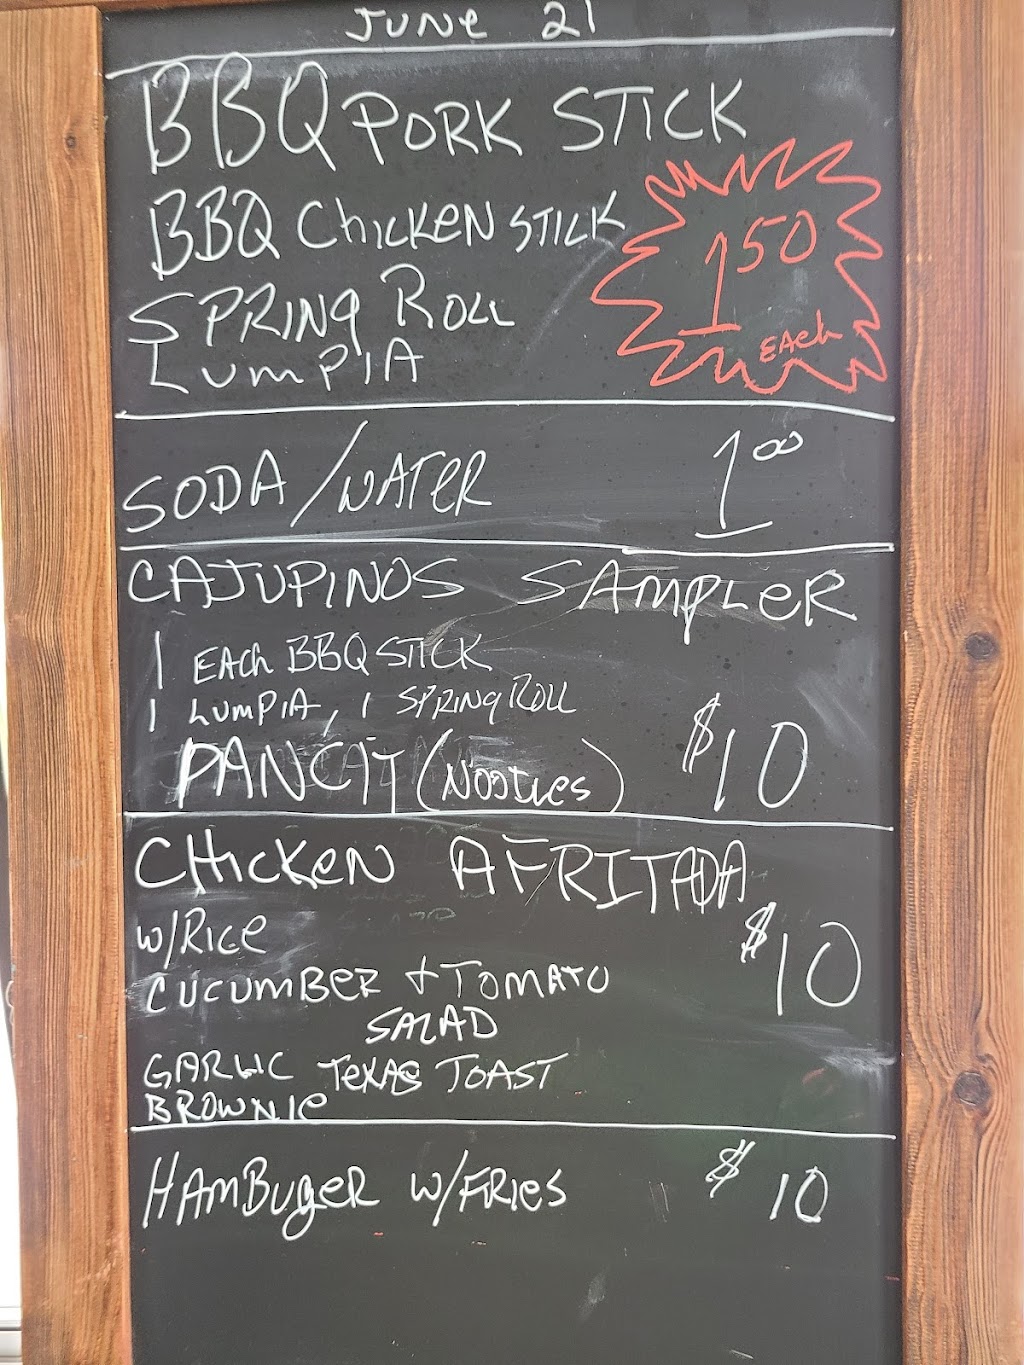 JUNE 21
BBQ PORK STICK
BBQ CHICKEN STICK
SPRING ROLL
LUMPIA
1.50
EACH
SODA/WATER 1.00
CAJUPINOS SAMPLER
1 EACH BBQ STICK
1 LUMPIA, 1 SPRING ROLL
PANCIT (NOODLES) $10
CHICKEN AFRITADA
W/RICE $10
CUCUMBER + TOMATO
SALAD
GARLIC TEXAS TOAST
BROWNIE
HAMBUGER W/FRIES $10